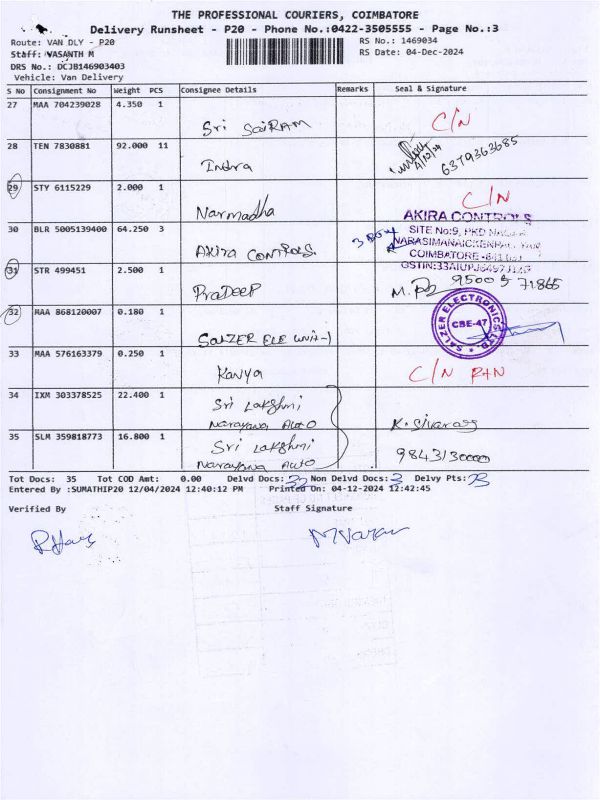 THE PROFESSIONAL COURIERS, COIMBATORE
Delivery Runsheet - P20 - Phone No.:0422-3505555 - Page No.:3
Route: VAN DLY - P20
RS No.: 1469034
Staff: VASANTH M
RS Date: 04-Dec-2024
DRS No.: DCJB146903403
Vehicle: Van Delivery
S No Consignment No Weight PCS Consignee Details Remarks Seal & Signature
27 MAA 704239028 4.350 1
Sri SaiRAM C/N
28 TEN 7830881 92.000 11
Indra 4/12/24 6379363685
29 STY 6115229 2.000 1
Narmadha C/N
30 BLR 5005139400 64.250 3
AKIRA CONTROLS. 3 BOX
AKIRA CONTROLS
SITE No:9, PKD NAGAR
NARASIMANAICKENPALAYAM
COIMBATORE-641 031
31 STR 499451 2.500 1
PraDeeP 95005 71865
32 MAA 868120007 0.180 1
SALZER ELE UNIT-1
SALZER ELECTRONICS LTD.
CBE-47
33 MAA 576163379 0.250 1
Kanya C/N R+N
34 IXM 303378525 22.400 1
Sri Lakshmi
Narayana Auto K. Sivaraj
35 SLM 359818773 16.800 1
Sri Lakshmi
Narayana Auto
Tot Docs: 35 Tot COD Amt: 0.00 Delvd Docs: 32 Non Delvd Docs: 3 Delvy Pts: 23
Entered By :SUMATHIP20 12/04/2024 12:40:12 PM Printed On: 04-12-2024 12:42:45
Verified By Staff Signature